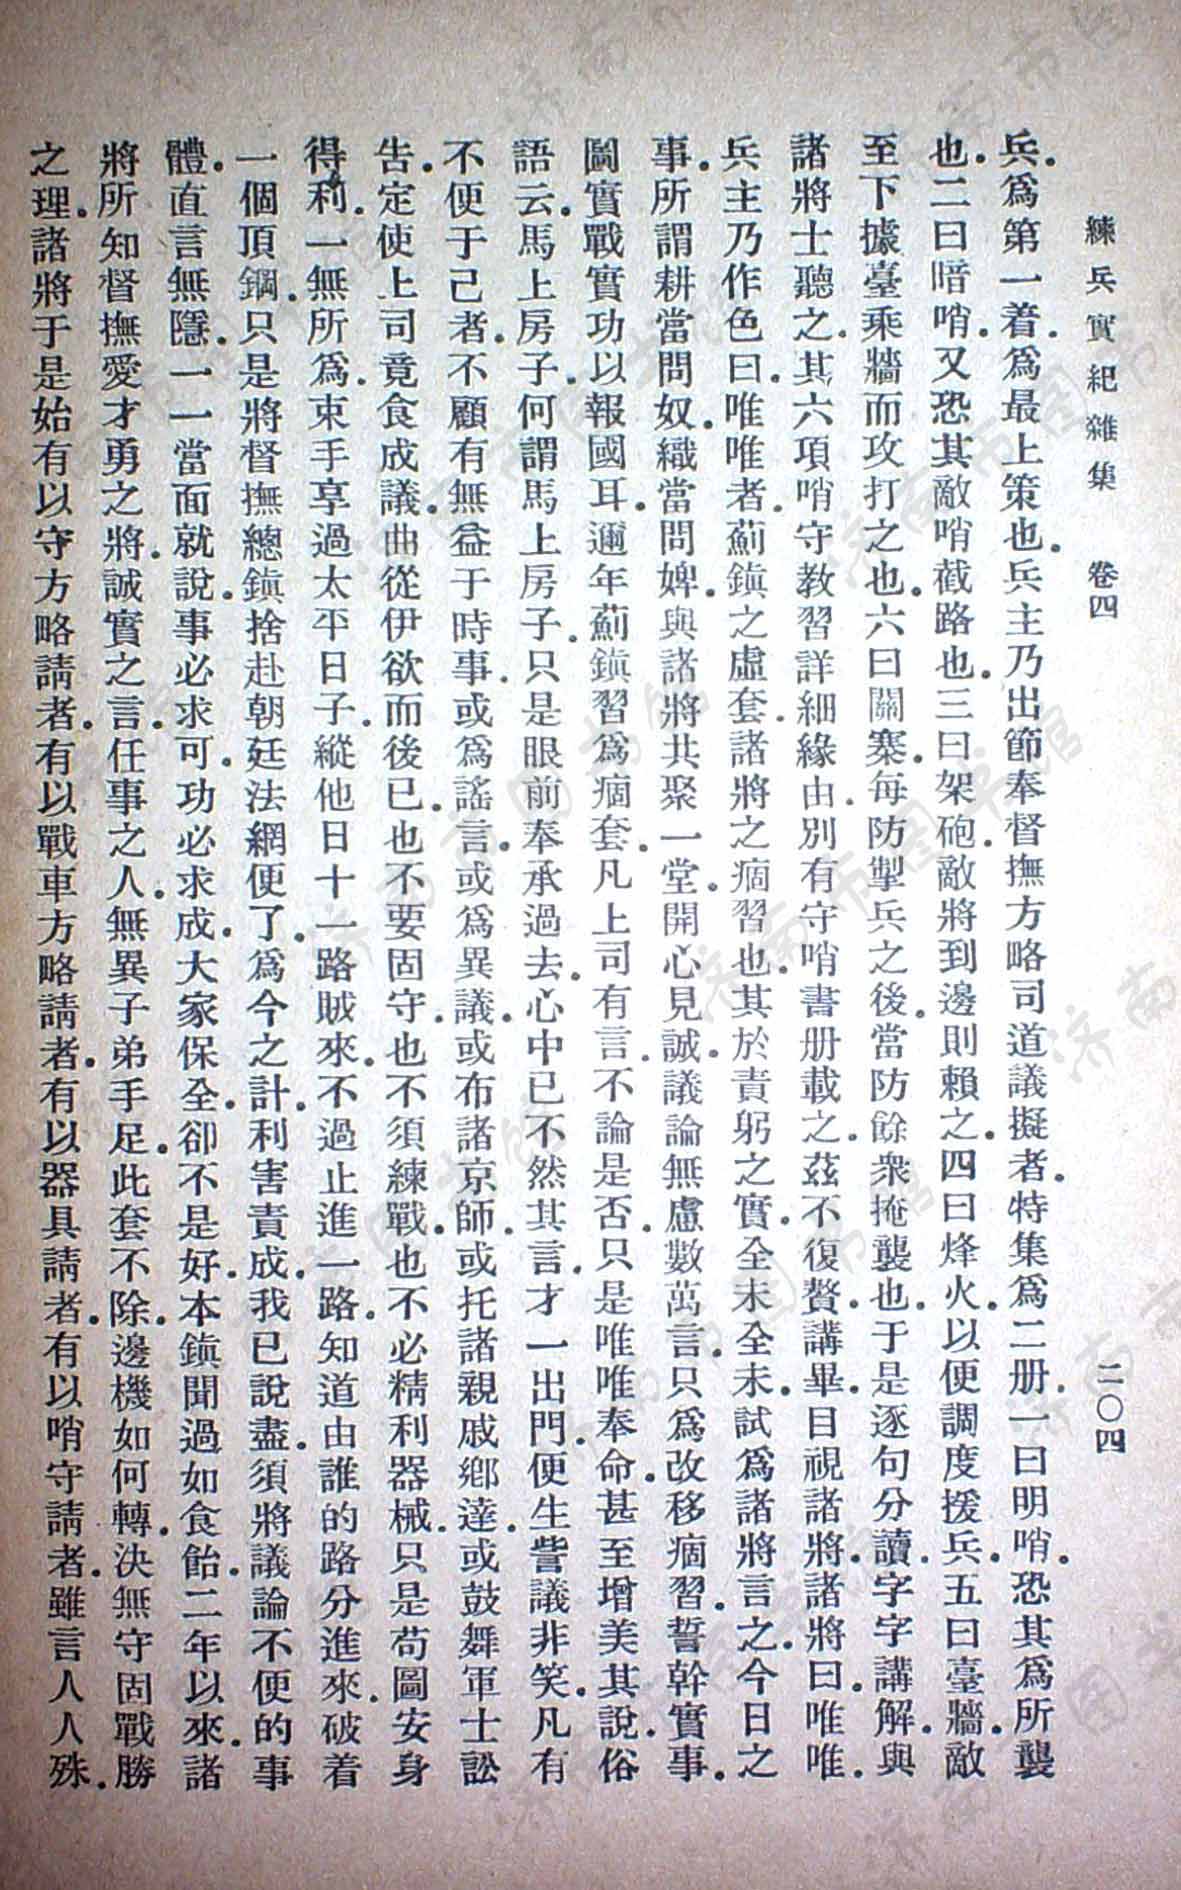 練兵實紀雜集　卷四　二〇四
兵。爲第一着。爲最上策也。兵主乃出節奉督撫方略司道議擬者。特集爲二册。一曰明哨。恐其爲所襲
也。二曰暗哨。又恐其敵哨截路也。三曰架砲。敵將到邊則賴之。四曰烽火。以便調度援兵。五曰臺牆。敵
至下據臺乘牆而攻打之也。六曰關寨。每防掣兵之後。當防餘衆掩襲也。于是逐句分讀。字字講解。與
諸將士聽之。其六項哨守教習詳細緣由。別有守哨書册載之。茲不復贅。講畢。目視諸將。諸將曰。唯唯。
兵主乃作色曰。唯唯者。薊鎭之虛套。諸將之痼習也。其於責躬之實。全未全未。試爲諸將言之。今日之
事。所謂耕當問奴。織當問婢。與諸將共聚一堂。開心見誠。議論無慮數萬言。只爲改移痼習。誓幹實事。
圖實戰實功以報國耳。邇年薊鎭習爲痼套。凡上司有言。不論是否。只是唯唯奉命。甚至增美其說。俗
語云。馬上房子。何謂馬上房子。只是眼前奉承過去。心中已不然其言。才一出門。便生訾議非笑。凡有
不便于己者。不顧有無益于時事。或爲謠言。或爲異議。或布諸京師。或托諸親戚鄉達。或鼓舞軍士訟
告。定使上司竟食成議。曲從伊欲而後已。也不要固守。也不須練戰。也不必精利器械。只是苟圖安身
得利。一無所爲。束手享過太平日子。縱他日十一路賊來。不過止進一路。知道由誰的路分進來。破着
一個頂鋼。只是將督撫總鎭捨赴朝廷法網便了。爲今之計。利害責成。我已說盡。須將議論不便的事
體。直言無隱。一一當面就說。事必求可。功必求成。大家保全。卻不是好。本鎭聞過如食飴。二年以來。諸
將所知督撫愛才勇之將。誠實之言。任事之人。無異子弟手足。此套不除。邊機如何轉。決無守固戰勝
之理。諸將于是始有以守方略請者。有以戰車方略請者。有以器具請者。有以哨守請者。雖言人人殊。